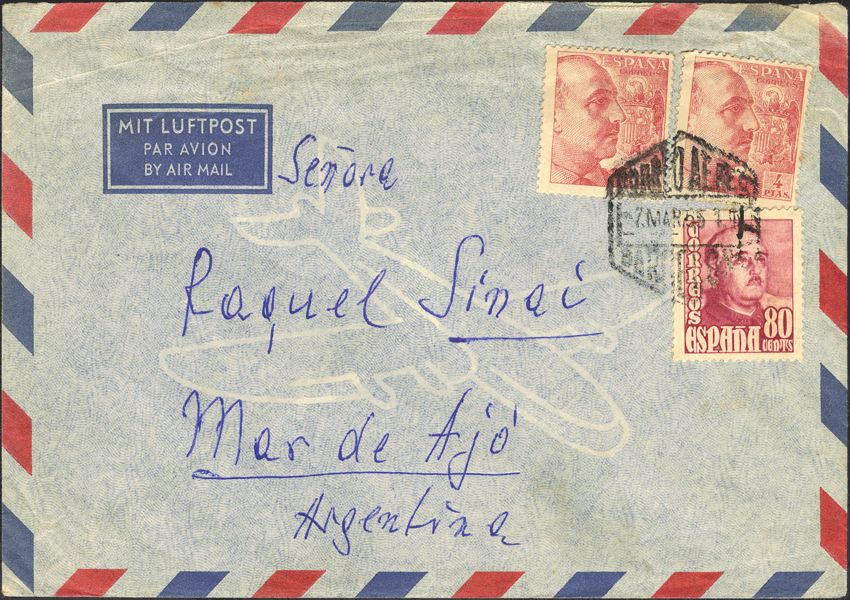 MIT LUFTPOST
PAR AVION
BY AIR MAIL
ESPAÑA
CORREOS
ESPAÑA
CORREOS
4
PTAS.
CORREO AEREO
CORREOS
ESPAÑA
80
CENTS
Señora
Raquel Sinai
Mar de Ajó
Argentina